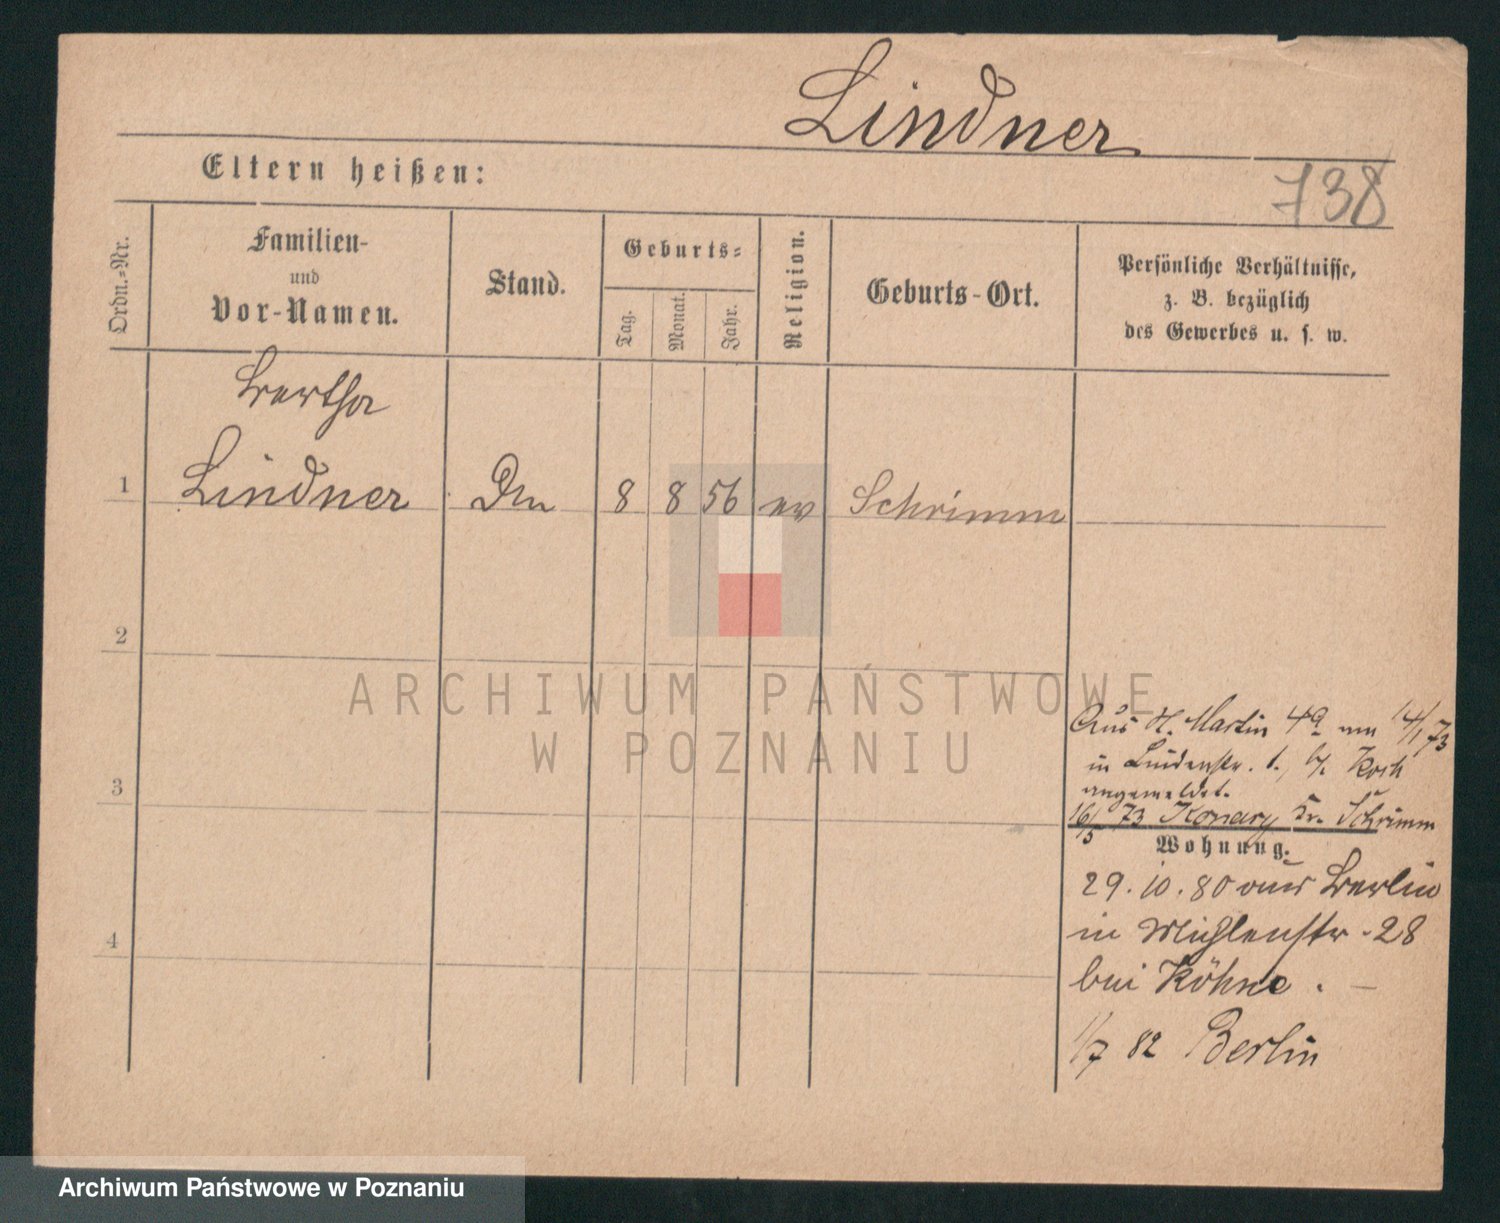 Lindner
738
Eltern heißen:
Ordn.=Nr.
Familien-
und
Vor-Namen.
Stand.
Geburts=
Tag.
Monat.
Jahr.
Religion.
Geburts-Ort.
Persönliche Verhältnisse,
z. B. bezüglich
des Gewerbes u. s. w.
Bertha
1 Lindner 8 8 56 ev Schrimm
2
ARCHIWUM PAŃSTWOWE
W POZNANIU
3
4
Aus St. Martin 4a am 14/1 73
in Lindenstr. 1., b/. Koch
angemeldet.
16/5 73 Konary Kr. Schrimm
Wohnung.
29. 10. 80 aus Berlin
in Mühlenstr. 28
bei Köhne.
1/7 82 Berlin
Archiwum Państwowe w Poznaniu